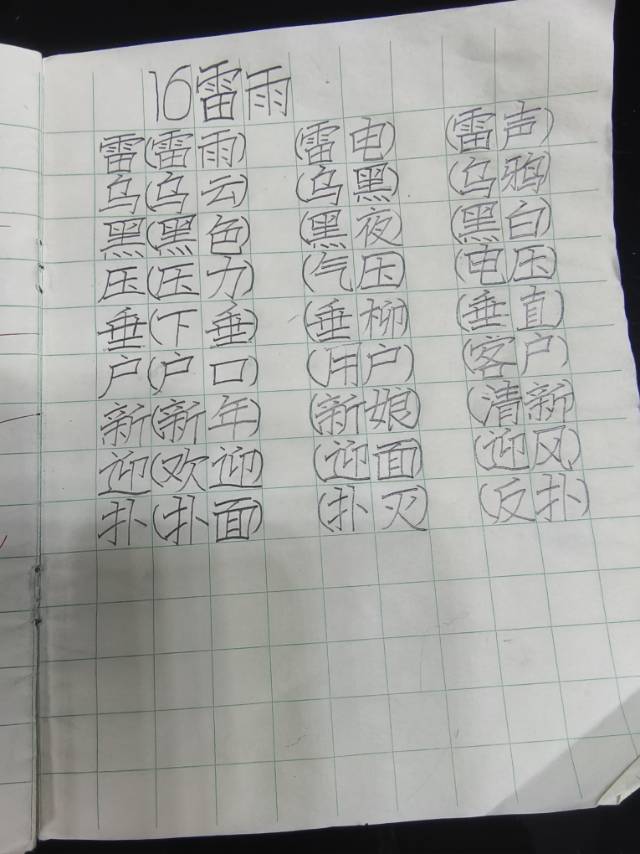 16雷雨
雷(雷雨) (雷电) (雷声)
乌(乌云) (乌黑) (乌鸦)
黑(黑色) (黑夜) (黑白)
压(压力) (气压) (电压)
垂(下垂) (垂柳) (垂直)
户(户口) (用户) (客户)
新(新年) (新娘) (清新)
迎(欢迎) (迎面) (迎风)
扑(扑面) (扑灭) (反扑)